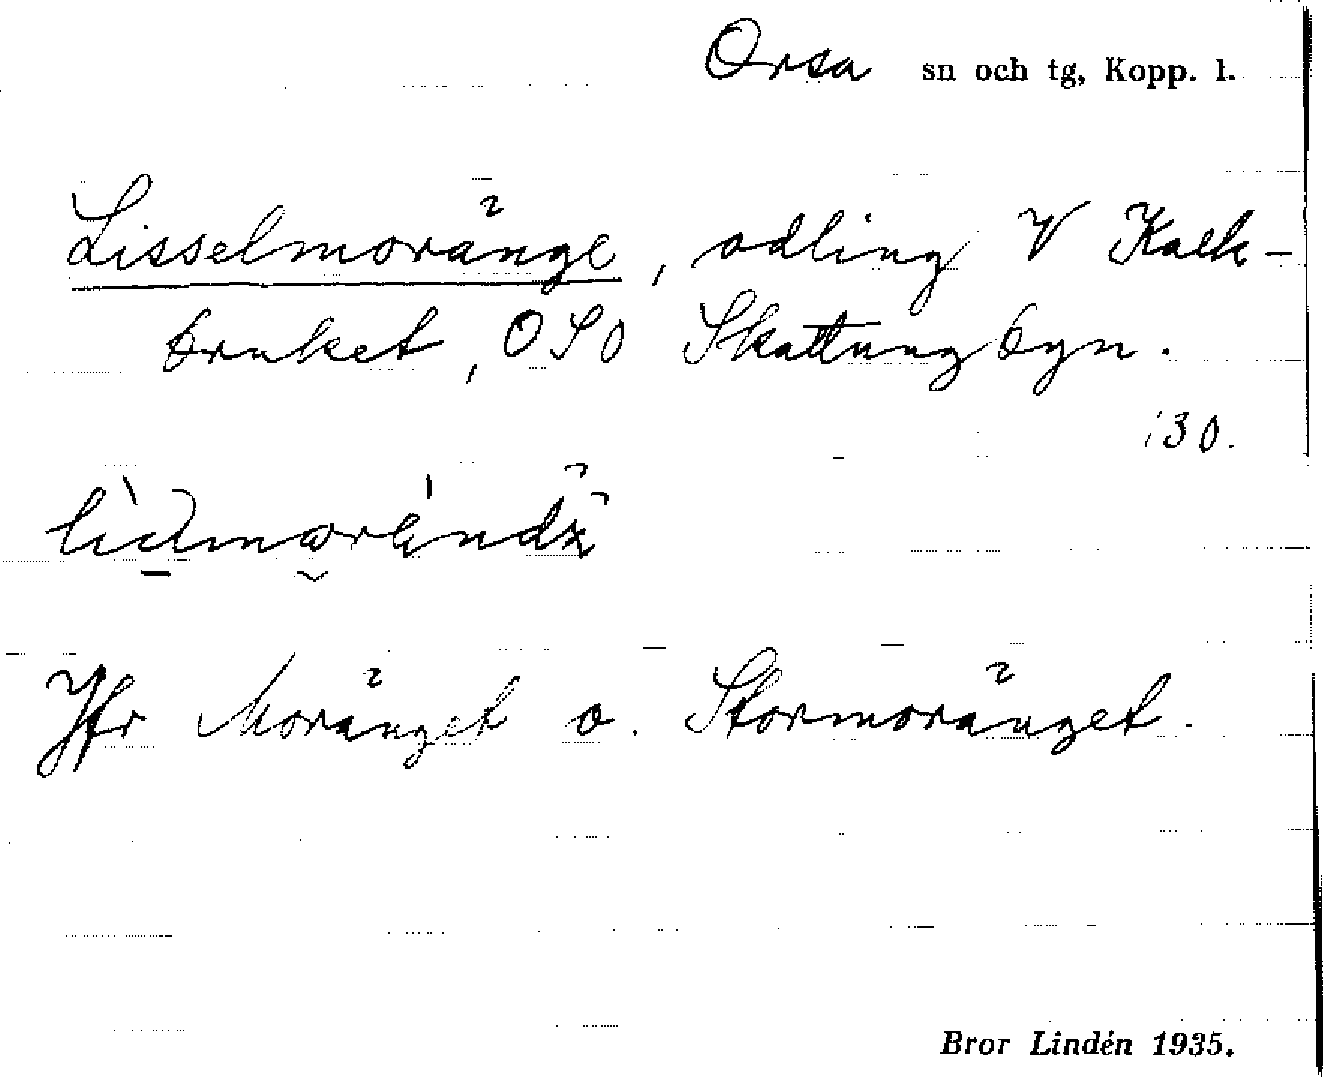 Orsa sn och tg, Kopp. l.
Lisselmoränge, odling V Kalk-
bruket, OSO Skattungbyn.
130.
Jfr Moränget o. Stormoränget.
Bror Lindén 1935.